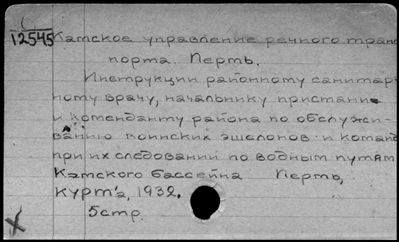 12545
Камское управление речного тран
порта. Пермь.
Инструкции районному санитар
ному врачу, начальнику пристани
и коменданту района по обслужи-
ванию воинских эшелонов и команд
при их следовании по водным путям
Камского бассейна Пермь,
Курт'а, 1932.
5стр.